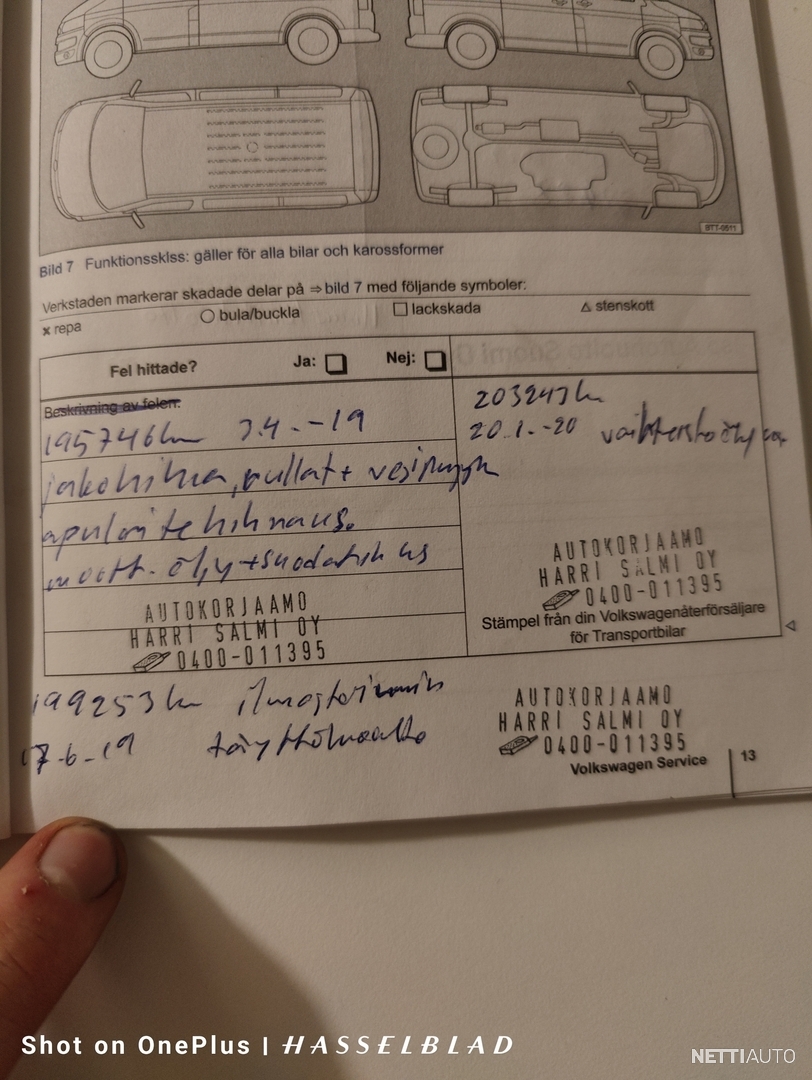 BTT-0511
Bild 7 Funktionsskiss: gäller för alla bilar och karossformer
Verkstaden markerar skadade delar på ⇒ bild 7 med följande symboler:
× repa ○ bula/buckla □ lackskada △ stenskott
Fel hittade? Ja: Nej:
Beskrivning av felen:
195746 km 3.4.-19
jakohihna, rullat + vesipumppu
apulaitehihnaus.
moott. öljy + suodatin
AUTOKORJAAMO
HARRI SALMI OY
0400-011395
203243 km
20.1.-20
AUTOKORJAAMO
HARRI SALMI OY
0400-011395
Stämpel från din Volkswagenåterförsäljare
för Transportbilar
199253 km ilmastoinnin
17-6-19 täyttöhuolto
AUTOKORJAAMO
HARRI SALMI OY
0400-011395
Volkswagen Service 13
Shot on OnePlus | HASSELBLAD
NETTIAUTO